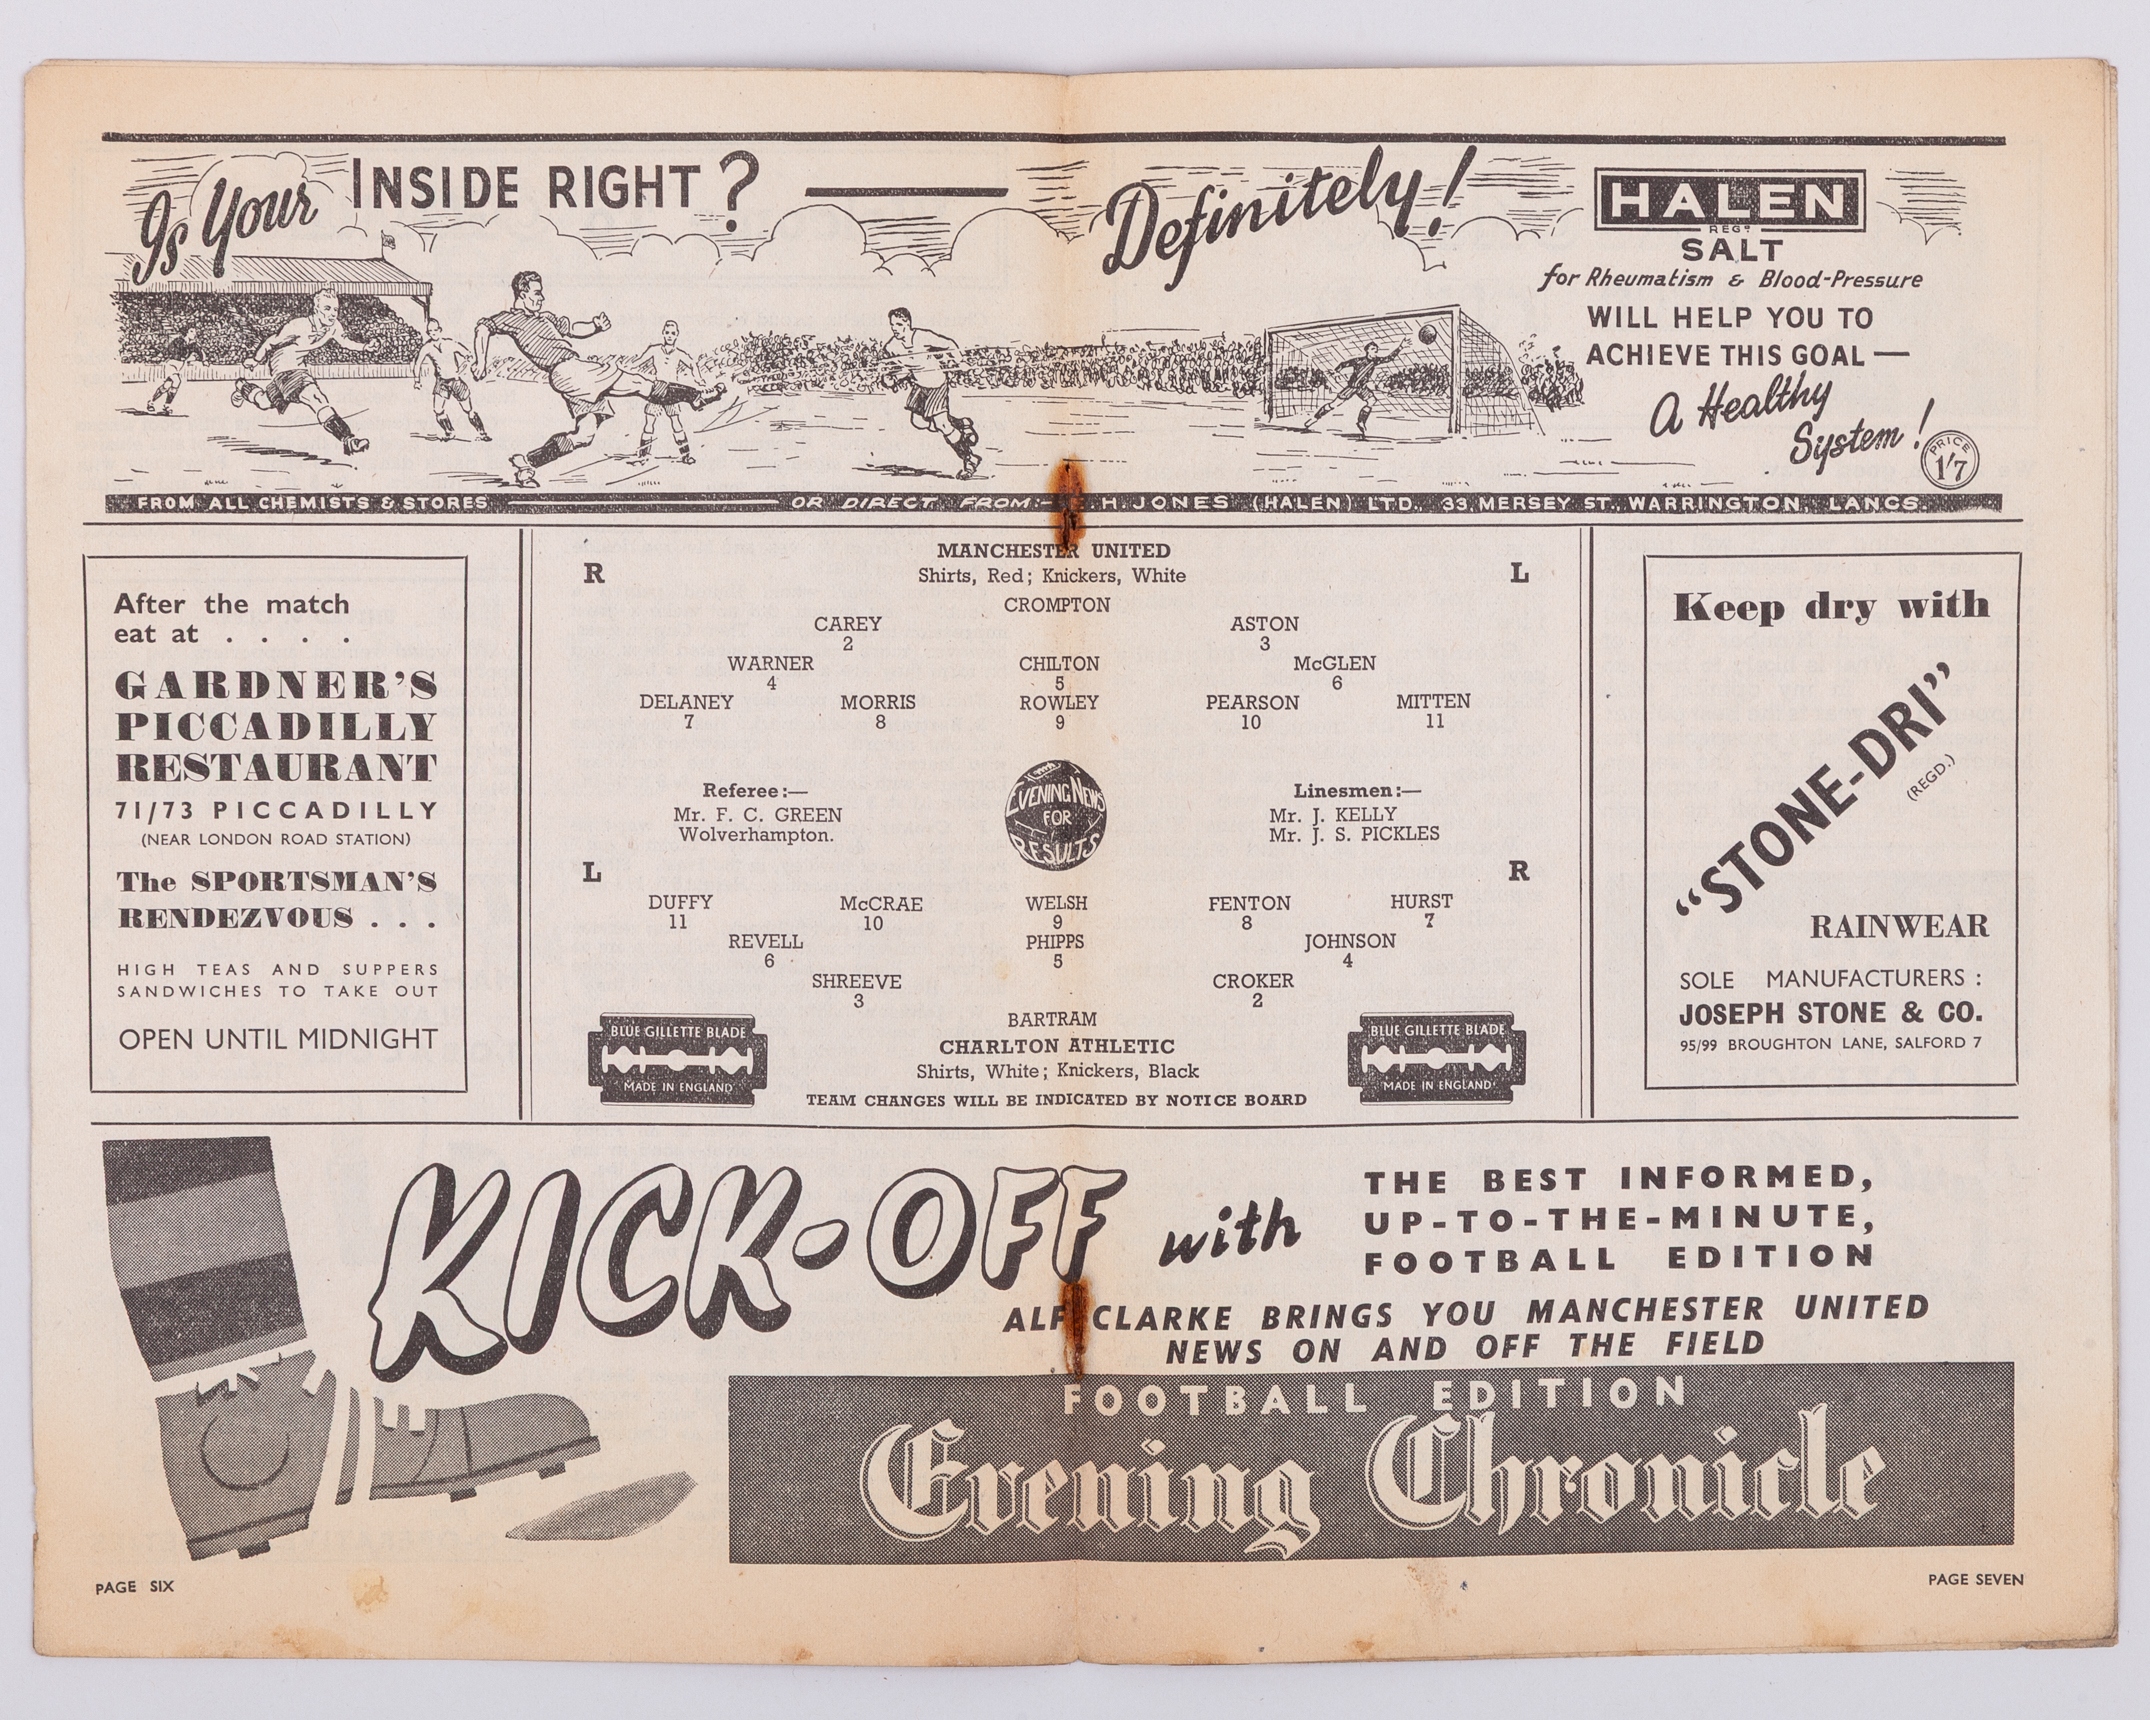 Is Your INSIDE RIGHT ? — Definitely!
HALEN
REGD
SALT
for Rheumatism & Blood-Pressure
WILL HELP YOU TO
ACHIEVE THIS GOAL —
A Healthy
System!
PRICE
1/7
FROM ALL CHEMISTS & STORES — OR DIRECT FROM:- H. JONES (HALEN) LTD. 33 MERSEY ST. WARRINGTON. LANCS.
After the match
eat at . . . .
GARDNER'S
PICCADILLY
RESTAURANT
71/73 PICCADILLY
(NEAR LONDON ROAD STATION)
The SPORTSMAN'S
RENDEZVOUS . . .
HIGH TEAS AND SUPPERS
SANDWICHES TO TAKE OUT
OPEN UNTIL MIDNIGHT
MANCHESTER UNITED
R Shirts, Red; Knickers, White L
CROMPTON
CAREY ASTON
2 3
WARNER CHILTON McGLEN
4 5 6
DELANEY MORRIS ROWLEY PEARSON MITTEN
7 8 9 10 11
Referee:— Linesmen:—
Mr. F. C. GREEN Mr. J. KELLY
Wolverhampton. Mr. J. S. PICKLES
EVENING NEWS
FOR
RESULTS
L R
DUFFY McCRAE WELSH FENTON HURST
11 10 9 8 7
REVELL PHIPPS JOHNSON
6 5 4
SHREEVE CROKER
3 2
BARTRAM
CHARLTON ATHLETIC
Shirts, White; Knickers, Black
TEAM CHANGES WILL BE INDICATED BY NOTICE BOARD
BLUE GILLETTE BLADE
MADE IN ENGLAND
BLUE GILLETTE BLADE
MADE IN ENGLAND
Keep dry with
"STONE-DRI"
(REGD.)
RAINWEAR
SOLE MANUFACTURERS :
JOSEPH STONE & CO.
95/99 BROUGHTON LANE, SALFORD 7
KICK-OFF with
THE BEST INFORMED,
UP-TO-THE-MINUTE,
FOOTBALL EDITION
ALF CLARKE BRINGS YOU MANCHESTER UNITED
NEWS ON AND OFF THE FIELD
FOOTBALL EDITION
Evening Chronicle
PAGE SIX
PAGE SEVEN